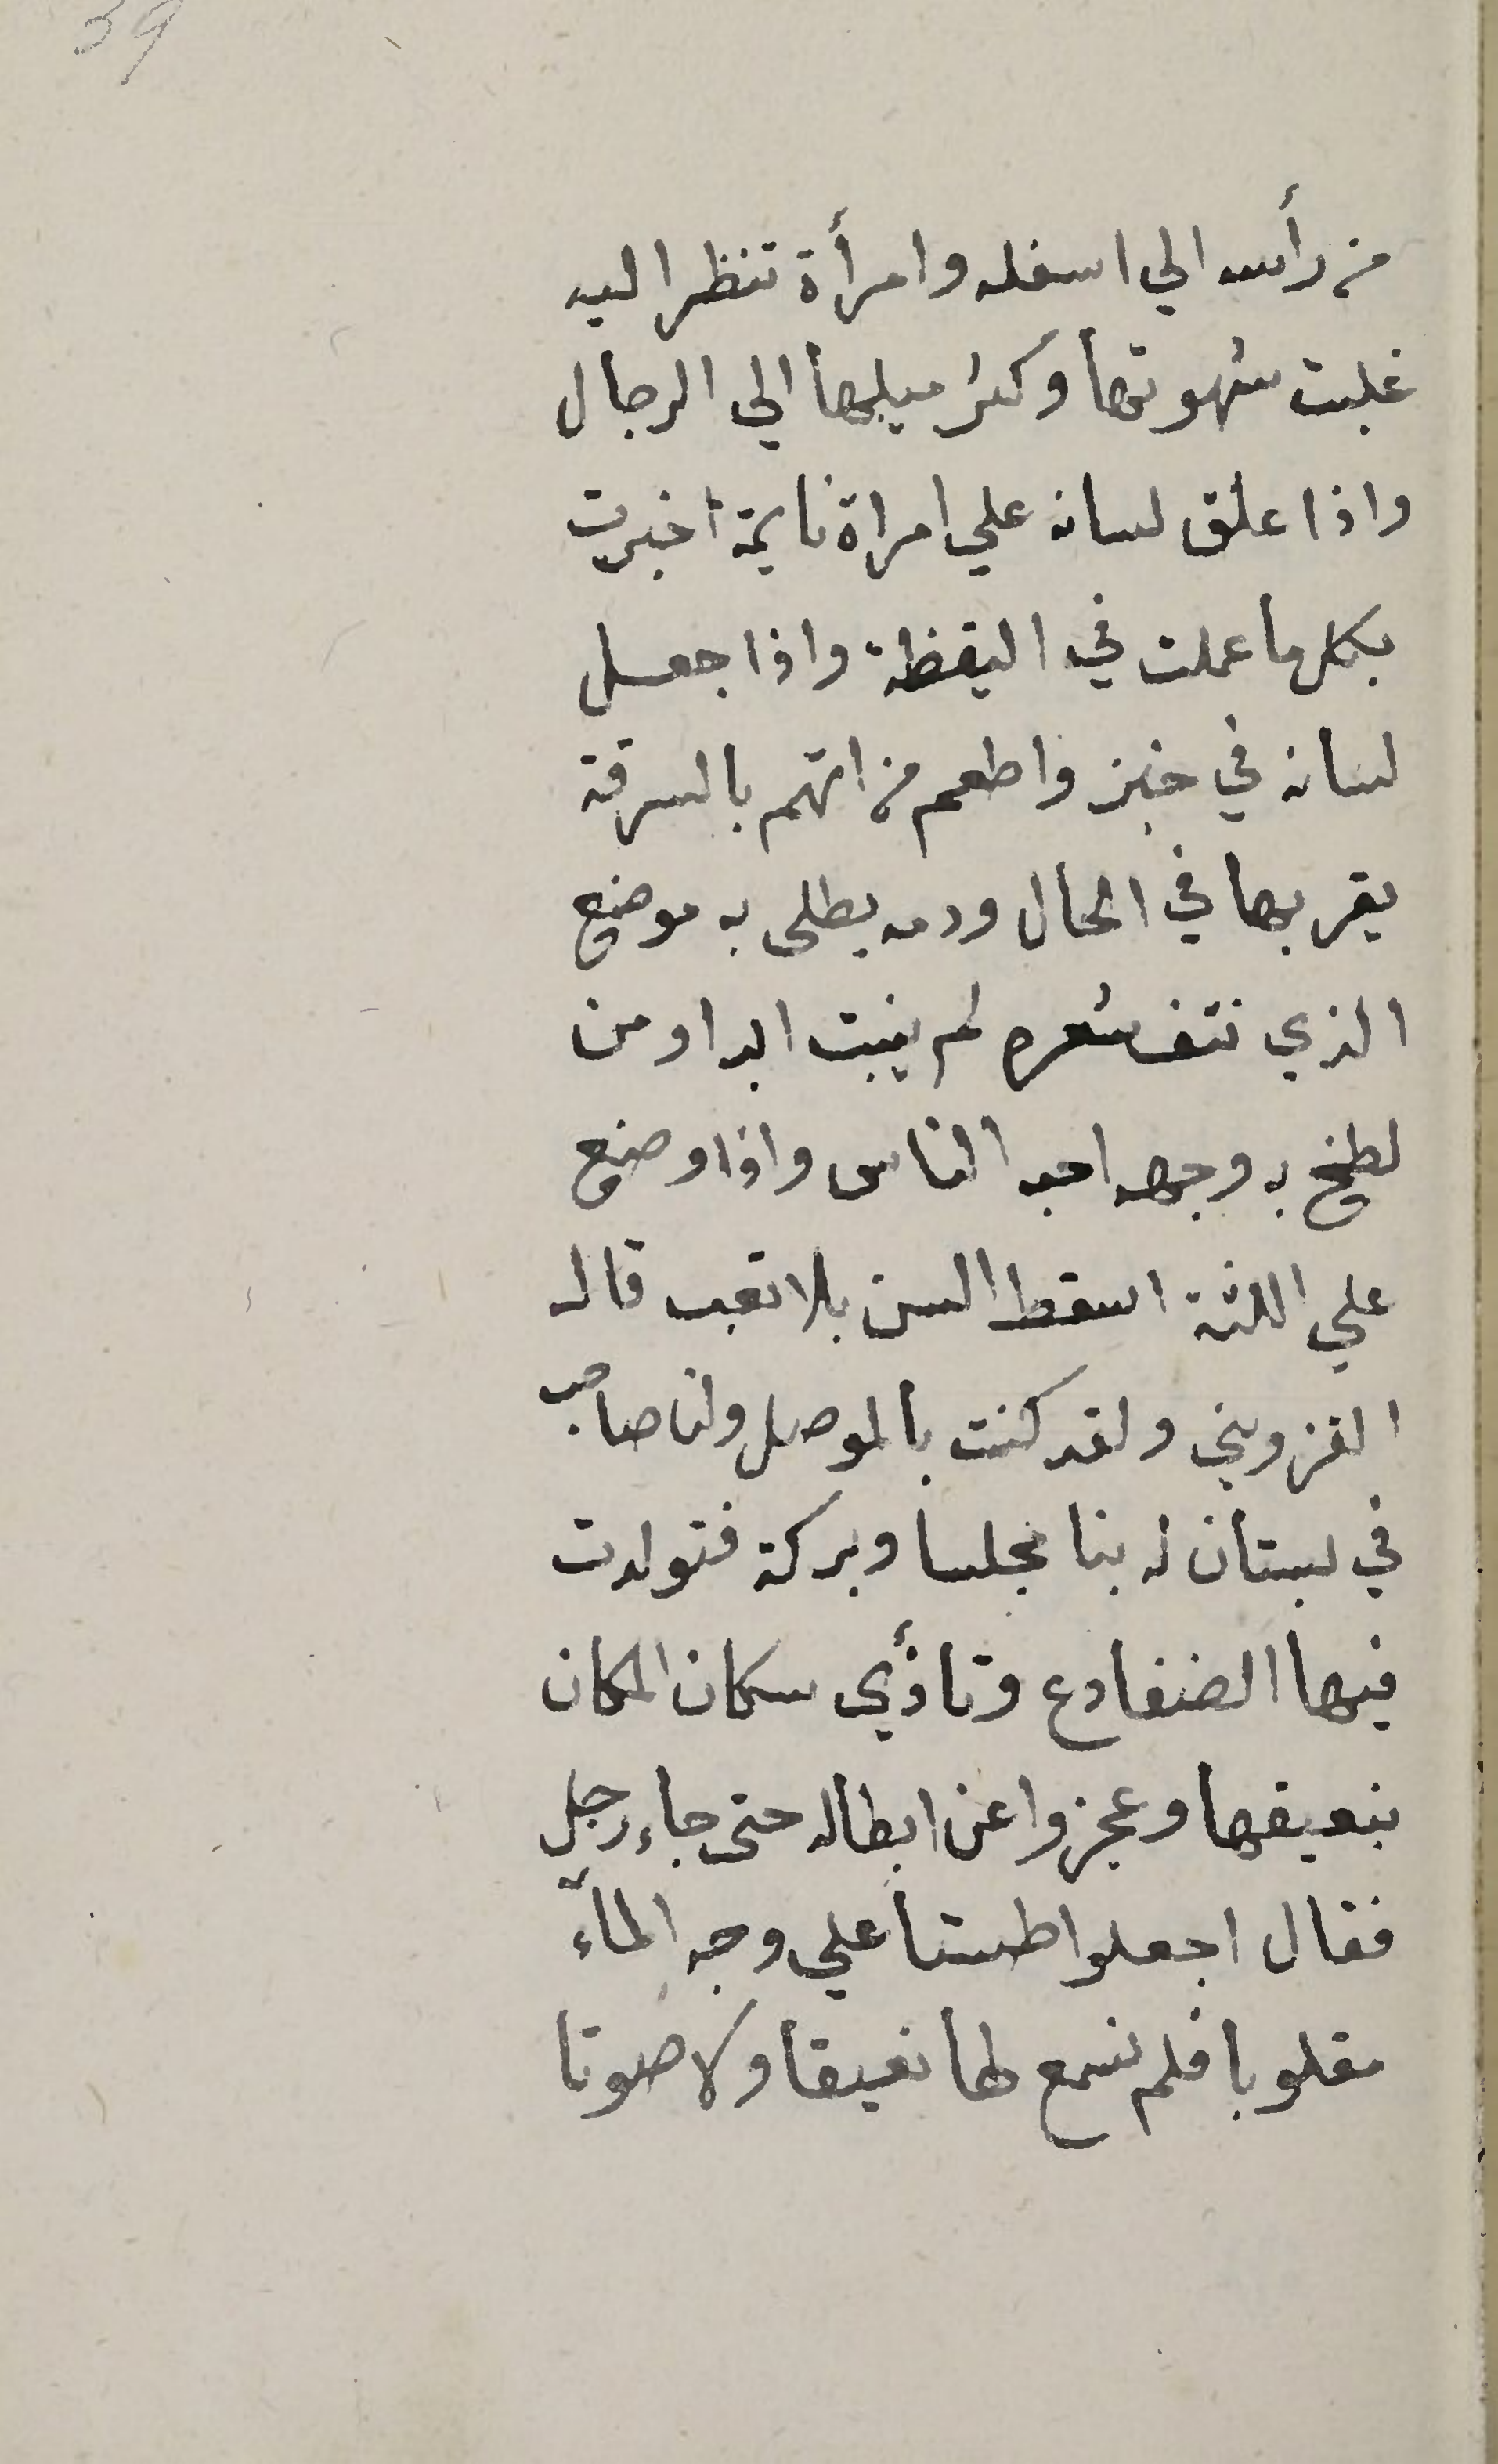 39
من رأسه الي اسفله وامرأة تنظر اليه
غلبت شهوتها وكثر ميلها الي الرجال
واذا علق لسانه علي امراة نايمة اخبرت
بكل ما عملت في اليقظة واذا جعل
لسانه في خبز واطعم من اتهم بالسرقة
يقر بها في الحال ودمه يطلى به موضع
الذي نتف شعره لم ينبت ابدا ومن
لطخ به وجهه احبه الناس واذا وضع
علي اللثة اسقط السن بلا تعب قال
القزويني ولقد كنت بالموصل ولنا صاحب
في بستان له بنا مجلسا وبركة فتولدت
فيها الضفادع وتاذّي سكان المكان
بنعيقها وعجزوا عن ابطاله حتى جاء رجل
فقال اجعلوا طستا علي وجه المآء
مقلوبا فلم نسمع لها نعيقا ولا صوتا